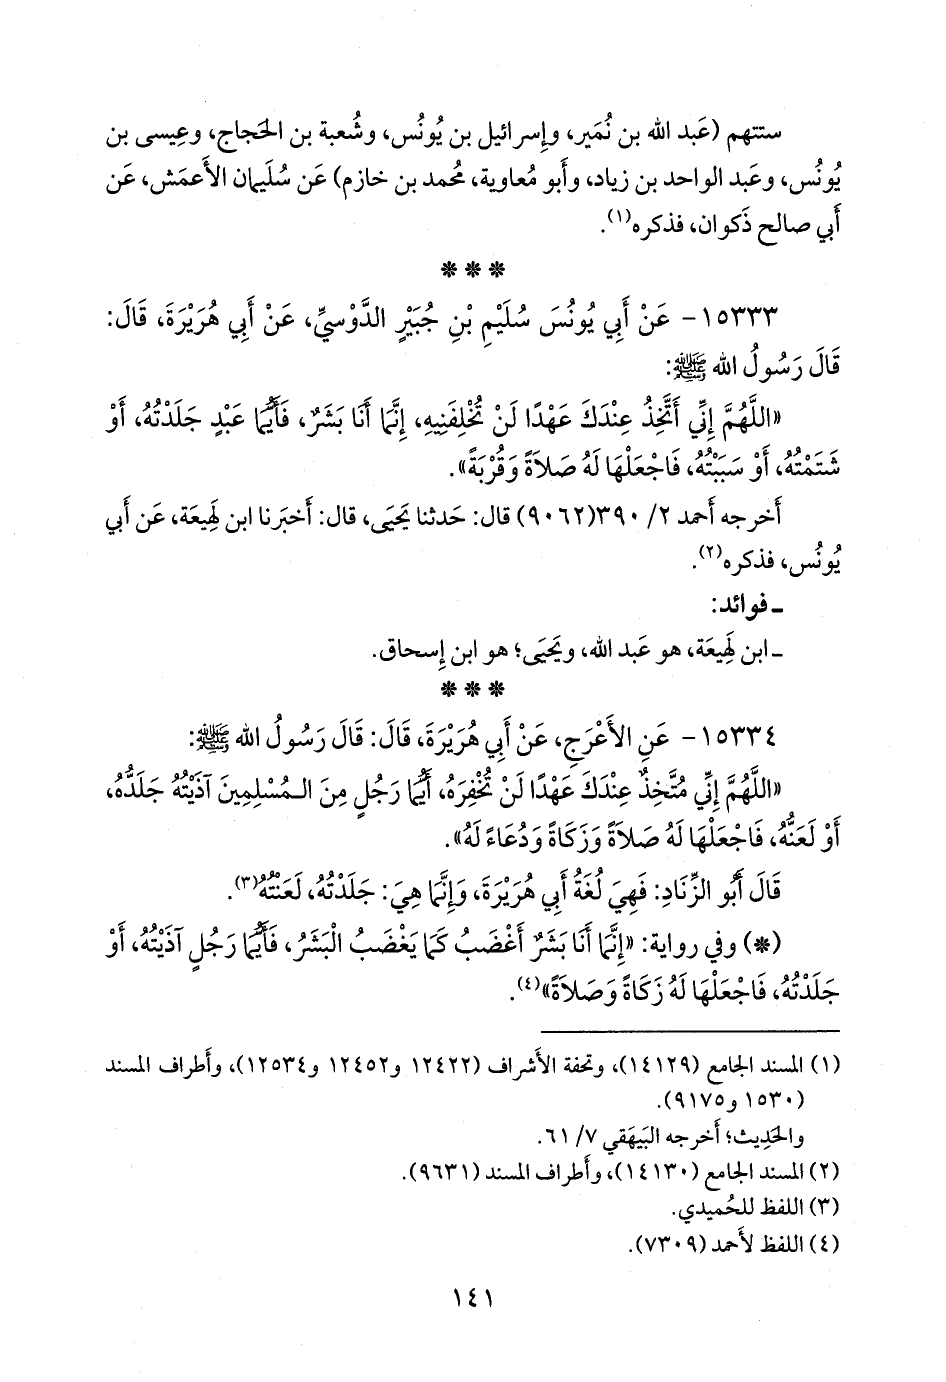 ستتهم (عَبد الله بن نُمَير، وإسرائيل بن يُونُس، وشُعبة بن الحَجاج، وعِيسى بن
يُونُس، وعَبد الواحد بن زياد، وأَبو مُعاوية، مُحمد بن خازم) عَن سُليمان الأَعمَش، عَن
أَبي صالح ذَكوان، فذكره(١).
* * *
١٥٣٣٣- عَنْ أَبِي يُونُسَ سُلَيْمِ بْنِ جُبَيْرٍ الدَّوْسِيِّ، عَنْ أَبِي هُرَيْرَةَ، قَالَ:
قَالَ رَسُولُ الله ﷺ:
«اللَّهُمَّ إِنِّي أَتَّخِذُ عِنْدَكَ عَهْدًا لَنْ تُخْلِفَنِيهِ، إِنَّمَا أَنَا بَشَرٌ، فَأَيُّمَا عَبْدٍ جَلَدْتُهُ، أَوْ
شَتَمْتُهُ، أَوْ سَبَبْتُهُ، فَاجْعَلْهَا لَهُ صَلَاةً وَقُرْبَةً».
أَخرجه أَحمد ٢/ ٣٩٠(٩٠٦٢) قال: حَدثنا يَحيَى، قال: أَخبَرنا ابن لَهِيعَة، عَن أَبي
يُونُس، فذكره(٢).
ـ فوائد:
ـ ابن لَهِيعَة، هو عَبد الله، ويَحيَى؛ هو ابن إِسحاق.
* * *
١٥٣٣٤- عَنِ الأَعْرَجِ، عَنْ أَبِي هُرَيْرَةَ، قَالَ: قَالَ رَسُولُ الله ﷺ:
«اللَّهُمَّ إِنِّي مُتَّخِذٌ عِنْدَكَ عَهْدًا لَنْ تُخْفِرَهُ، أَيُّمَا رَجُلٍ مِنَ الـمُسْلِمِينَ آذَيْتُهُ جَلَدُّهُ،
أَوْ لَعَنُّهُ، فَاجْعَلْهَا لَهُ صَلَاةً وَزَكَاةً وَدُعَاءً لَهُ».
قَالَ أَبُو الزِّنَادِ: فَهِيَ لُغَةُ أَبِي هُرَيْرَةَ، وَإِنَّمَا هِيَ: جَلَدْتُهُ، لَعَنْتُهُ(٣).
(*) وفي رواية: «إِنَّمَا أَنَا بَشَرٌ أَغْضَبُ كَمَا يَغْضَبُ الْبَشَرُ، فَأَيُّمَا رَجُلٍ آذَيْتُهُ، أَوْ
جَلَدْتُهُ، فَاجْعَلْهَا لَهُ زَكَاةً وَصَلَاةً»(٤).
(١) المسند الجامع (١٤١٢٩)، وتحفة الأَشراف (١٢٤٢٢ و١٢٤٥٢ و١٢٥٣٤)، وأَطراف المسند
(١٥٣٠ و٩١٧٥).
والحَدِيث؛ أَخرجه البَيهَقي ٧/ ٦١.
(٢) المسند الجامع (١٤١٣٠)، وأَطراف المسند (٩٦٣١).
(٣) اللفظ للحُميدي.
(٤) اللفظ لأَحمد (٧٣٠٩).
١٤١